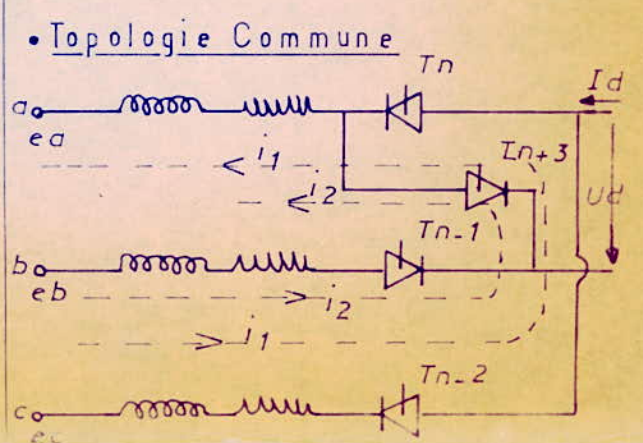 • Topologie Commune
Tn
Id
a
ea
i1
In+3
i2
Ud
Tn-1
b
eb
i2
i1
Tn-2
c
ec